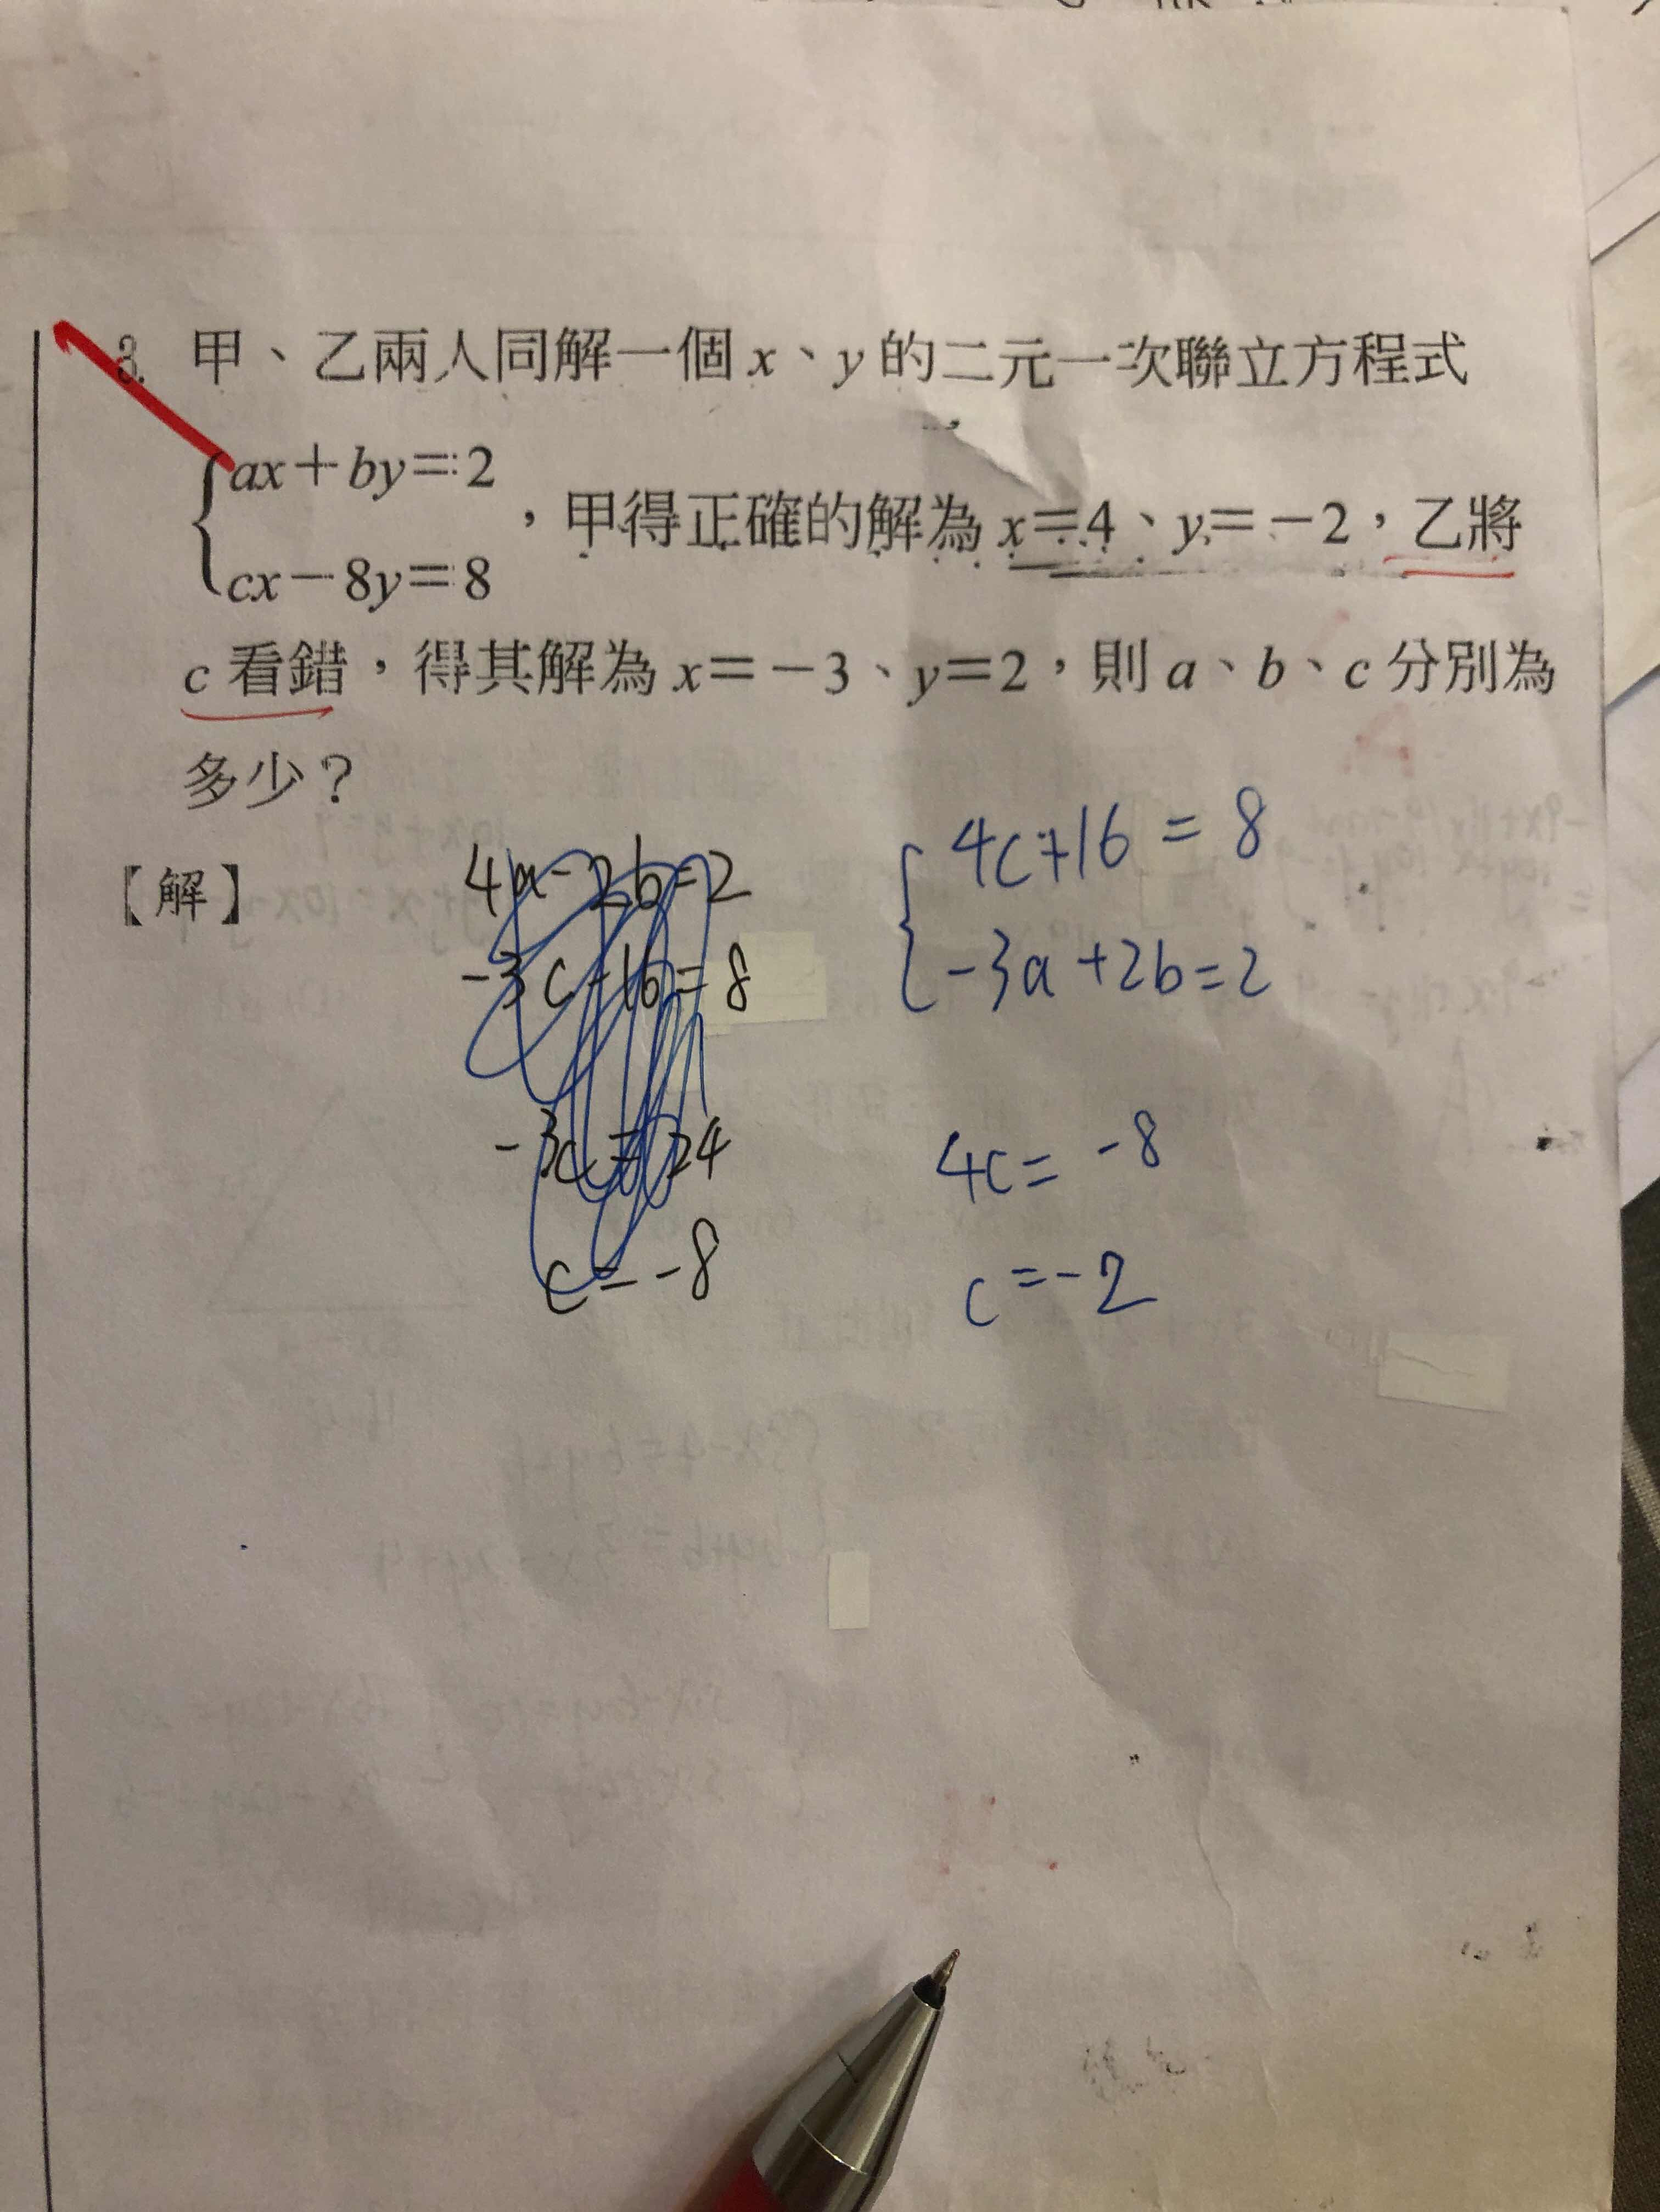 3. 甲、乙兩人同解一個 x、y 的二元一次聯立方程式
ax+by=2
cx-8y=8
,甲得正確的解為 x=4、y=-2,乙將
c 看錯,得其解為 x=-3、y=2,則 a、b、c 分別為
多少?
【解】
4a-2b=2
-3c-16=8
-3c=24
c=-8
4c+16=8
-3a+2b=2
4c=-8
c=-2